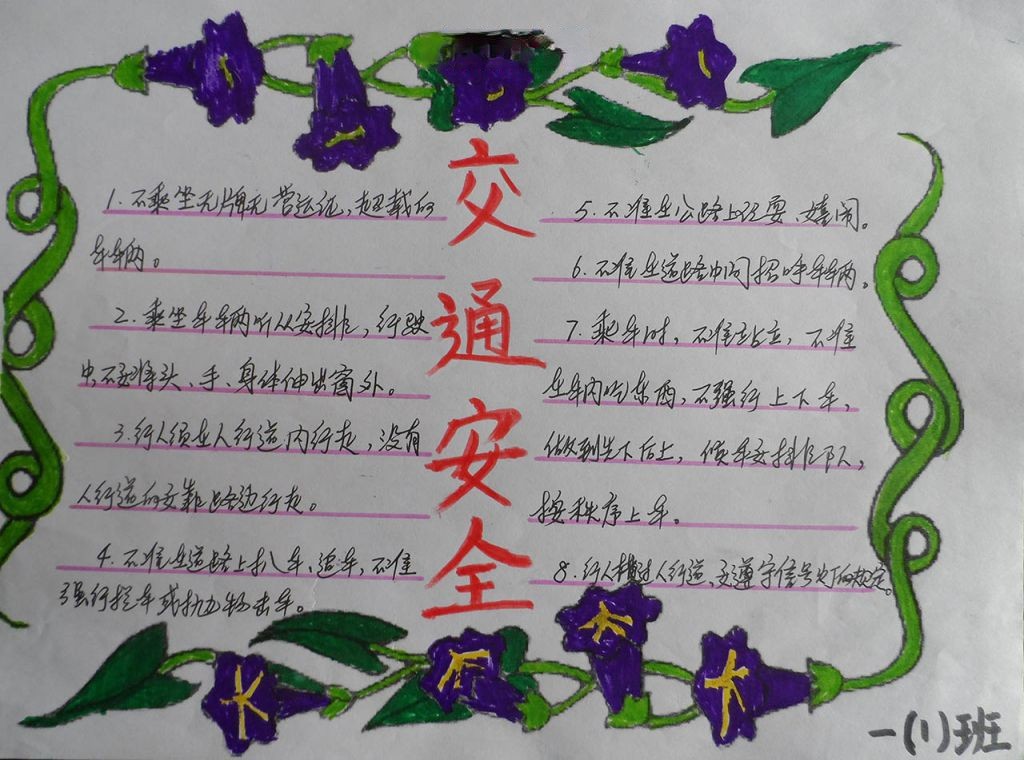 交通安全
1. 不乘坐无牌无营运证、超载的
车辆。
2. 乘坐车辆听从安排，行驶
中不要将头、手、身体伸出窗外。
3. 行人须在人行道内行走，没有
人行道的要靠路边行走。
4. 不准在道路上扒车、追车，不准
强行拦车或抛物击车。
5. 不准在公路上玩耍、嬉闹。
6. 不准在道路中间招呼车辆。
7. 乘车时，不准站立，不准
在车内吃东西，不强行上下车，
做到先下后上，候车要排队，
按秩序上车。
8. 行人横过人行道，要遵守信号灯的规定。
一(1)班